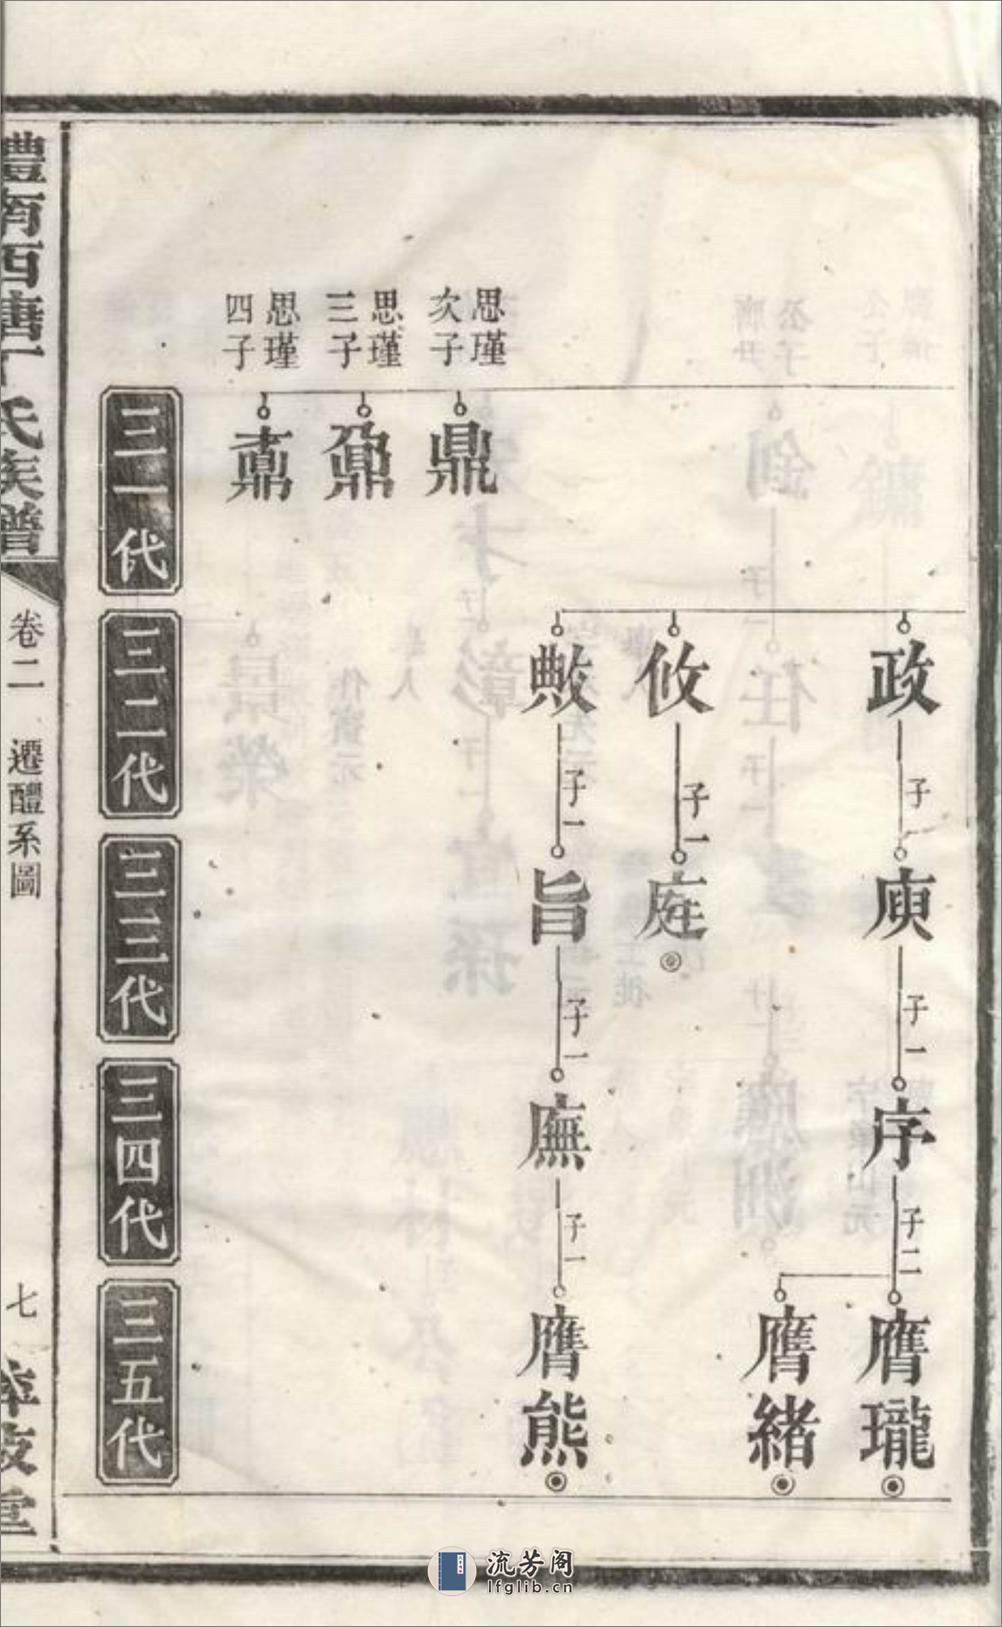 思瑾
次子
鼎
思瑾
三子
鼐
思瑾
四子
鼒
三一代
政
攸
敟
三二代
子一
子一
子一
庾
庭
旨
三三代
子一
子一
序
廡
三四代
子二
子一
膺瓏
膺緒
膺熊
三五代
澧南西塘丁氏族譜
卷二
遷醴系圖
七
流芳阁
lfglib.cn